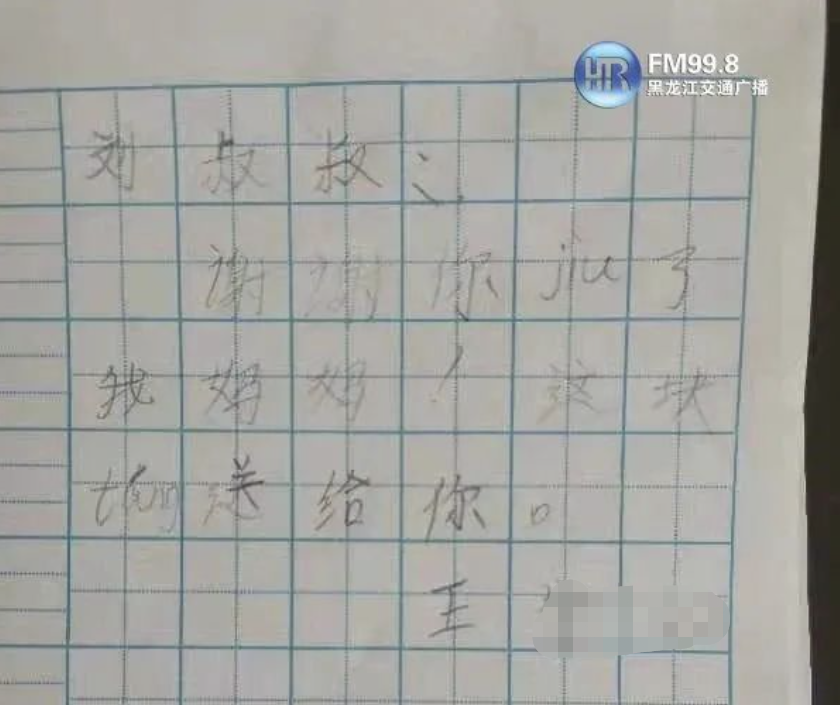 FM99.8
黑龙江交通广播
刘叔叔：
谢谢你jiu了
我妈妈！这块
tang送给你。
王